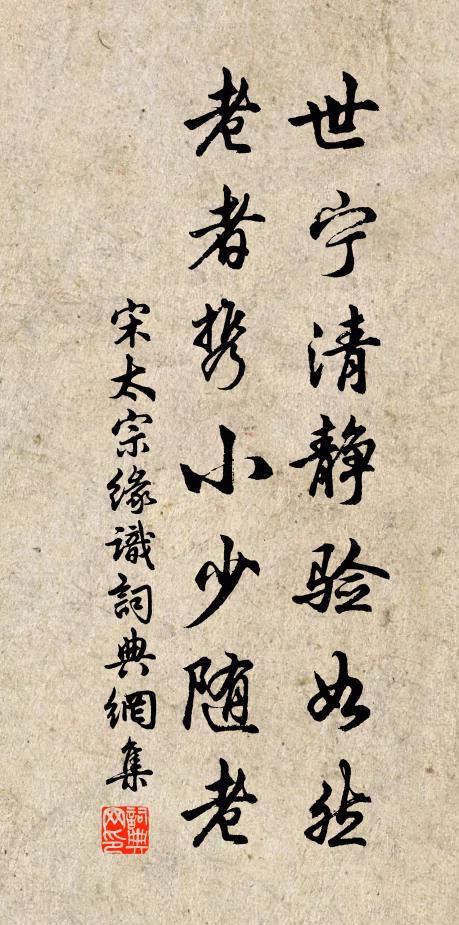 世宁清静验如然
老者携小少随老
宋太宗缘识詞典網集
詞典网印